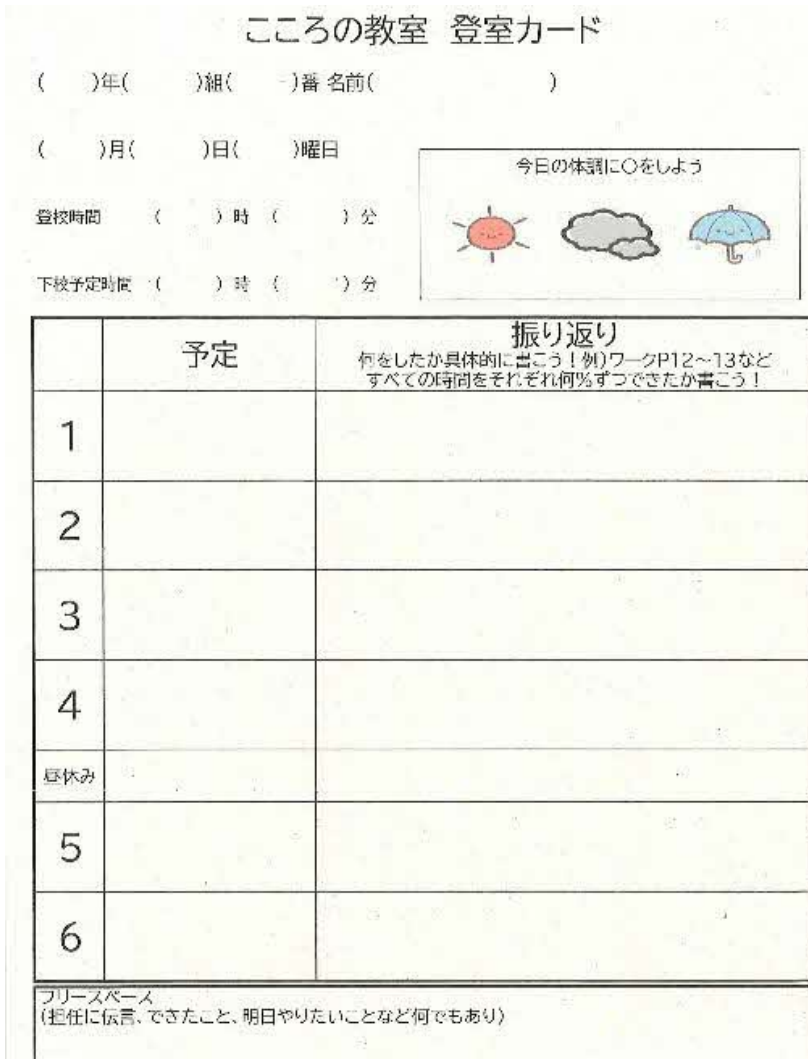 こころの教室 登室カード
(　　)年(　　)組(　　)番 名前(　　　　　　)
(　　)月(　　)日(　　)曜日
今日の体調に○をしよう
登校時間　(　　)時　(　　)分
下校予定時間　(　　)時　(　　)分
予定
振り返り
何をしたか具体的に書こう！例)ワークP12～13など
すべての時間をそれぞれ何%ずつできたか書こう！
1
2
3
4
昼休み
5
6
フリースペース
(担任に伝言、できたこと、明日やりたいことなど何でもあり)